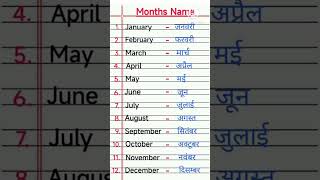 Months Name
1. January - जनवरी
2. February - फरवरी
3. March - मार्च
4. April - अप्रैल
5. May - मई
6. June - जून
7. July - जुलाई
8. August - अगस्त
9. September - सितंबर
10. October - अक्टूबर
11. November - नवंबर
12. December - दिसम्बर
4. April
अप्रैल
5. May
मई
6. June
जून
7. July
जुलाई